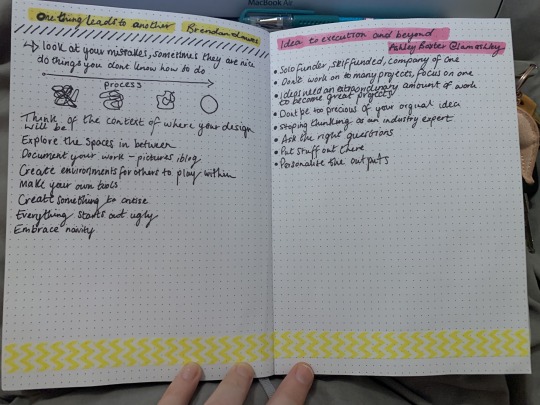 MacBook Air
One thing leads to another Brendan Dawes
↳ look at your mistakes, sometimes they are nice
do things you dont know how to do
PROCESS
Think of the context of where your design
will be
Explore the spaces in between
Document your work - pictures / blog
Create environments for others to play within
Make your own tools
Create something to
Everything starts out ugly
Embrace naivity
Idea to execution and beyond
Ashley Baxter @iamashley
• Solo funder, self funded, company of one
• Don't work on to many projects, focus on one
• ideas need an extraordinary amount of work
to become great projects
• Dont be to precious of your orginal idea
• stoping thinking as an industry expert
• Ask the right questions
• Put stuff out there
• Personalise the outputs